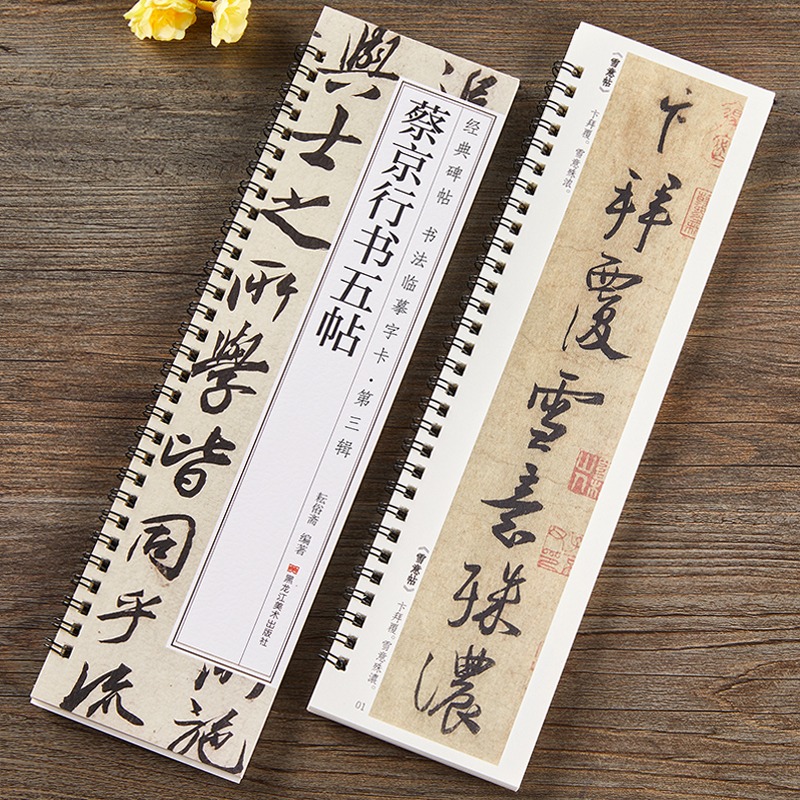 追
與士之所學皆同乎流
施
经典碑帖 书法临摹字卡·第三辑
蔡京行书五帖
耘俗斋 编著
黑龙江美术出版社
《雪意帖》
卞拜覆。雪意殊浓。
卞拜覆雪意殊濃
《雪意帖》
卞拜覆。雪意殊濃。
01